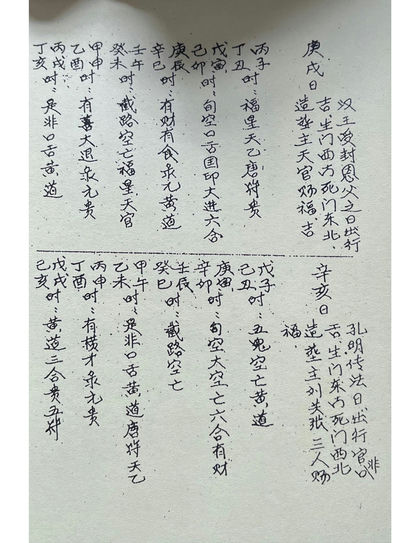 庚戌日
汉王没封恩父之日出行
吉生门西方死门东北
造葬主天官赐福吉
丙子时：福星天乙唐符贵
丁丑
戊寅时：旬空口舌国印大进六合
己卯
庚辰时：有财有食录元黄道
辛巳
壬午时：截路空亡福星天官
癸未
甲申时：有喜大退录元贵
乙酉
丙戌时：是非口舌黄道
丁亥
辛亥日
孔明传法日出行官非口
舌生门东方死门西北
造葬主刘关张三人赐
福
戊子时：五鬼空亡黄道
己丑
庚寅时：旬空大空亡六合有财
辛卯
壬辰时：截路空亡
癸巳
甲午时：是非口舌黄道唐符天乙
乙未
丙申时：有横才录元贵
丁酉
戊戌时：黄道三合贵五符
己亥